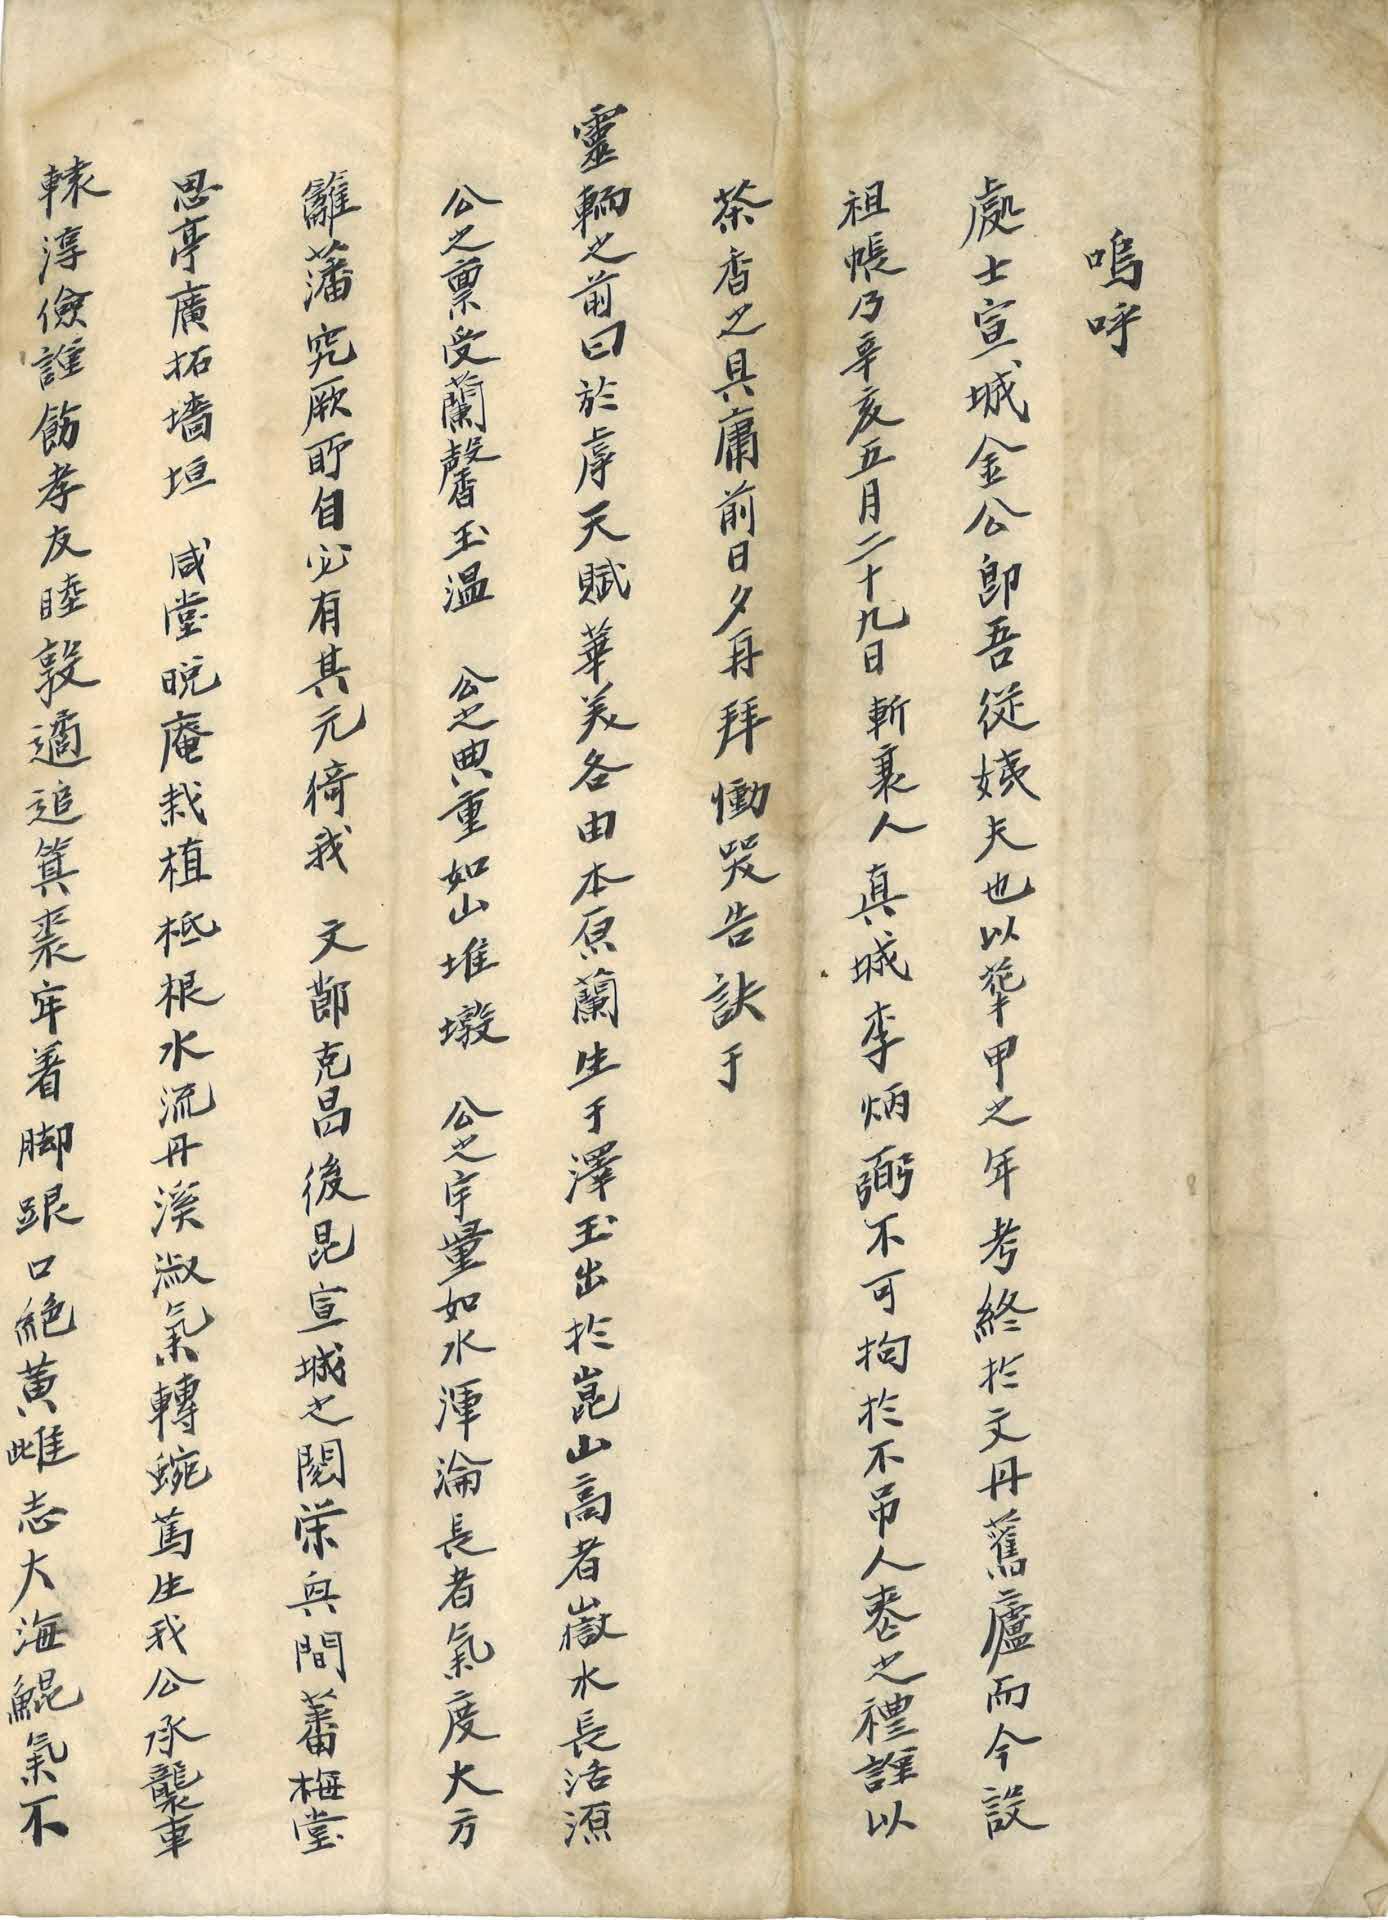 嗚呼
處士宣城金公卽吾從姨夫也以華甲之年考終於文丹舊廬而今設
祖帳乃辛亥五月二十九日斬衰人眞城李炳弼不可拘於不吊人之禮謹以
茶香之具庸前日夕再拜慟哭告訣于
靈輀之前曰於虖天賦華美各由本原蘭生于澤玉出於崑山高者嶽水長活源
公之稟受蘭馨玉溫 公之典重如山堆墩 公之宇量如水渾淪長者氣度大方
籬藩究厥所自必有其元猗我 文節克昌後昆宣城之閥榮與間蕃梅堂
思亭廣拓墻垣 咸堂晚庵栽植柢根水流丹溪淑氣轉蜿篤生我公承襲車
轅淳儉謹飭孝友睦敦遹追箕裘牢着脚跟口絶黃雌志大海鯤氣不